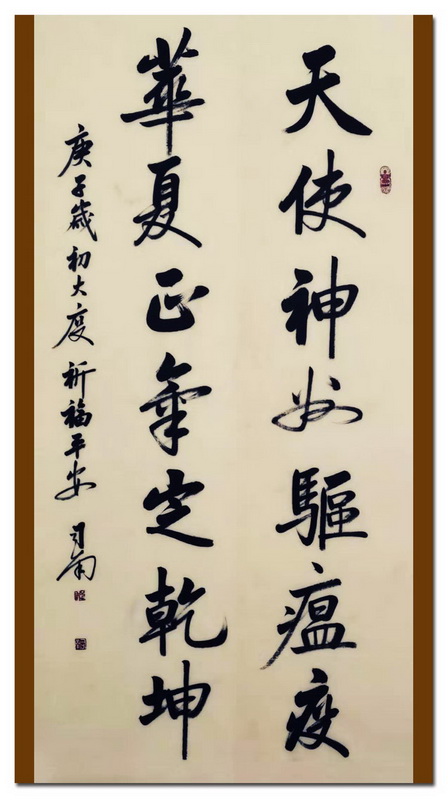 天使神州驅瘟疫
華夏正氣定乾坤
庚子歲初大度祈福平安 司南